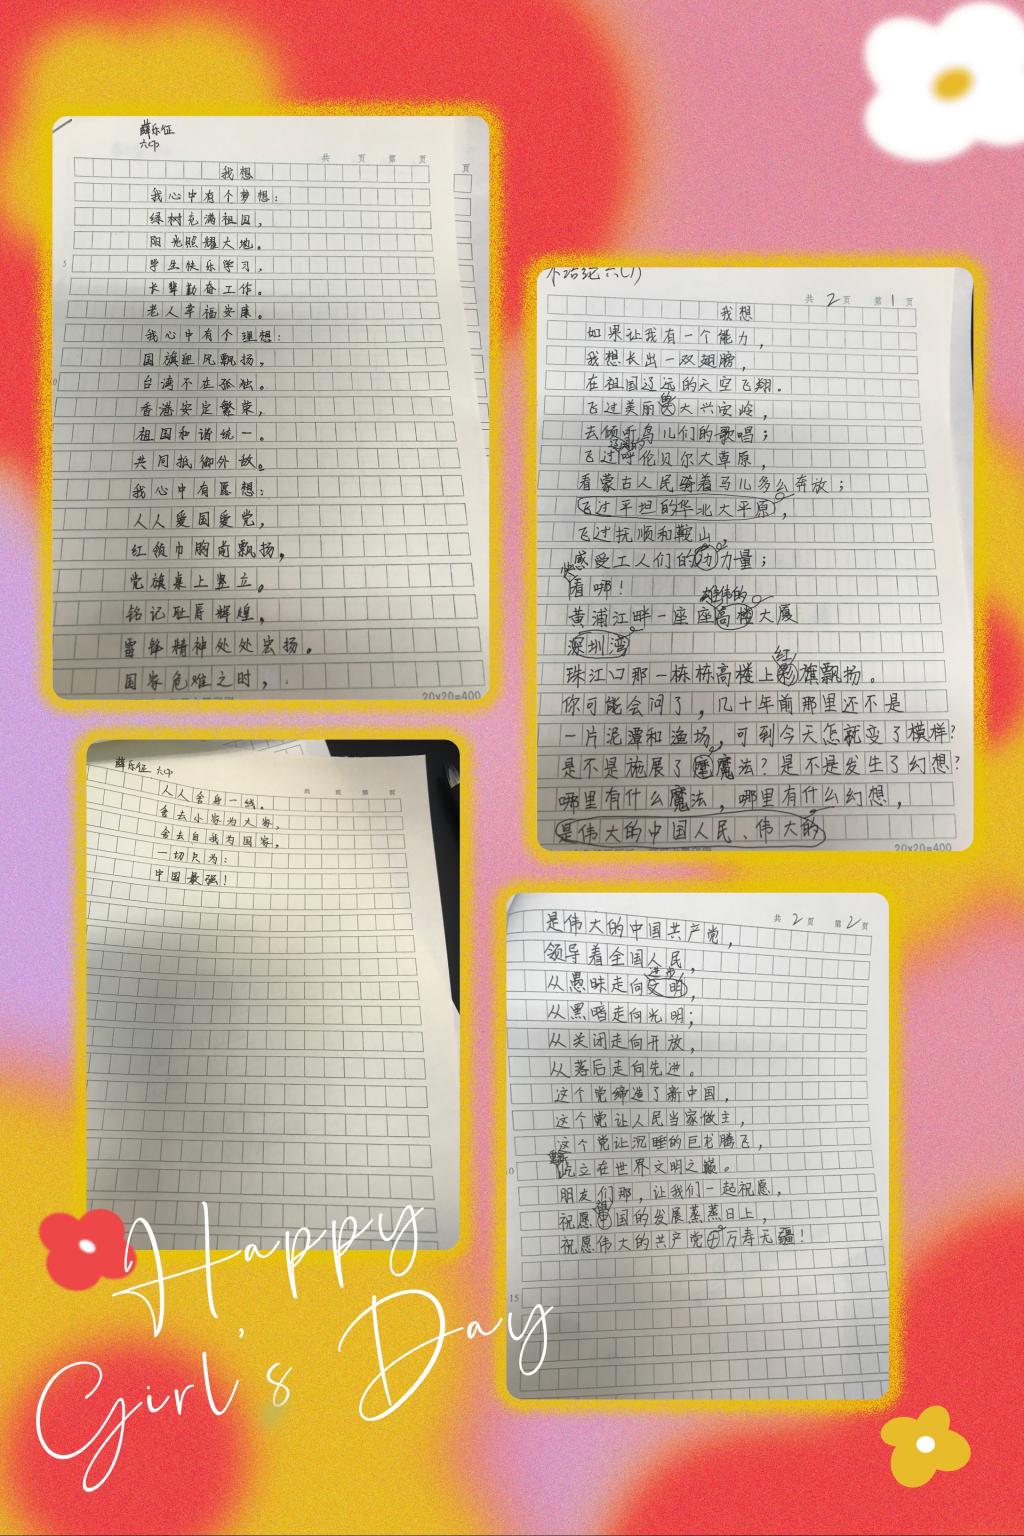 薛乐征
六(1)
共 页 第 页
页
我想
我心中有个梦想：
绿树充满祖国，
阳光照耀大地。
5
学生快乐学习，
长辈勤奋工作。
老人幸福安康。
我心中有个理想：
国旗迎风飘扬，
台湾不在孤独。
香港安定繁荣，
祖国和谐统一。
共同抵御外敌。
我心中有愿想：
人人爱国爱党，
红领巾胸前飘扬，
党旗桌上竖立。
铭记耻辱辉煌，
雷锋精神处处宏扬。
国家危难之时，
20x20=400
薛乐征 六(1)
共 页 第 页
人人舍身一线。
舍去小家为大家，
舍去自我为国家，
一切只为：
中国最强！
六(1)
共 2 页 第 1 页
我想
如果让我有一个能力，
我想长出一双翅膀，
在祖国辽远的天空飞翔。
飞过美丽的大兴安岭，
去倾听鸟儿们的歌唱；
辽阔的
飞过呼伦贝尔大草原，
看蒙古人民骑着马儿多么奔放；
飞过平坦的华北大平原，
飞过抚顺和鞍山，
感受工人们的力量；
看哪！
雄伟的
黄浦江畔一座座高楼大厦
深圳湾
红
珠江口那一栋栋高楼上彩旗飘扬。
你可能会问了，几十年前那里还不是
一片泥潭和渔场，可到今天怎就变了模样？
是不是施展了魔法？是不是发生了幻想？
哪里有什么魔法，哪里有什么幻想，
是伟大的中国人民、伟大的
20x20=400
共 2 页 第 2 页
是伟大的中国共产党，
领导着全国人民，
进步
从愚昧走向文明，
从黑暗走向光明；
从关闭走向开放，
从落后走向先进。
这个党缔造了新中国，
这个党让人民当家做主，
这个党让沉睡的巨龙腾飞，
屹立在世界文明之巅。
朋友们那，让我们一起祝愿，
祖
祝愿中国的发展蒸蒸日上，
祝愿伟大的共产党万寿无疆！
15
Happy
Girl's Day